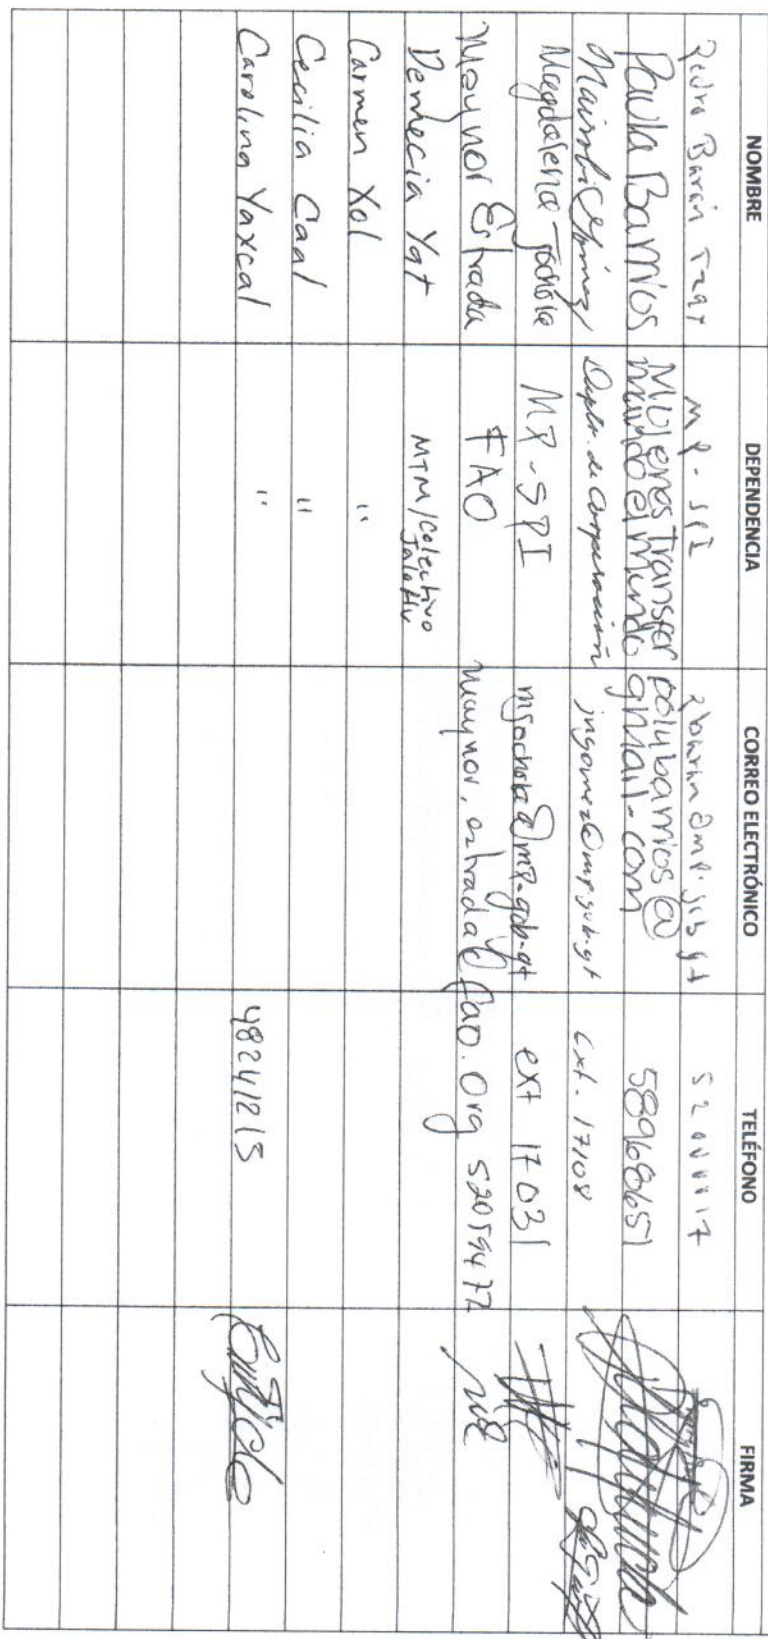 NOMBRE DEPENDENCIA CORREO ELECTRÓNICO TELÉFONO FIRMA
Pedro MP-SPI
Paula Barrios Mujeres Transfor polybarrios@ 58968651
mando el mundo gmail.com
Depto. de Cooperación jngomez@mp.gob.gt ext. 17108
Magdalena Jocholá MP-SPI mjochola@mp.gob.gt ext 17031
Maynor Estrada FAO maynor.estrada@fao.org 52059472
Demecia Yat MTM/Colectivo
Jalok U
Carmen Xol "
Cecilia Caal "
Carolina Yaxcal " 48241215